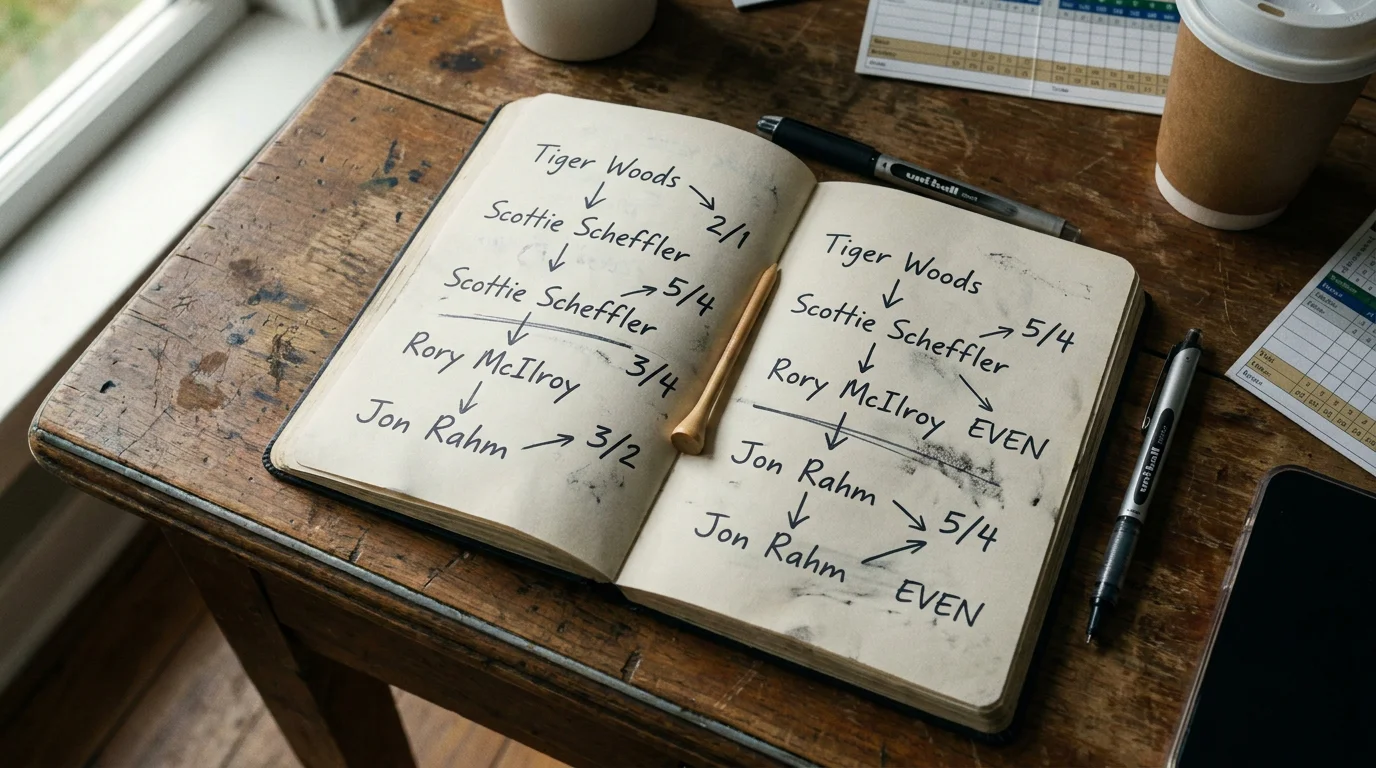 Tiger Woods
↓ ↘ 2/1
Scottie Scheffler
↓
Scottie Scheffler → 5/4
↓ 3/4
Rory McIlroy
↓
Jon Rahm → 3/2
Tiger Woods
↓
Scottie Scheffler → 5/4
↓ ↘ EVEN
Rory McIlroy
↓
Jon Rahm ↘ 5/4
↓
Jon Rahm ↗
EVEN
uni-ball